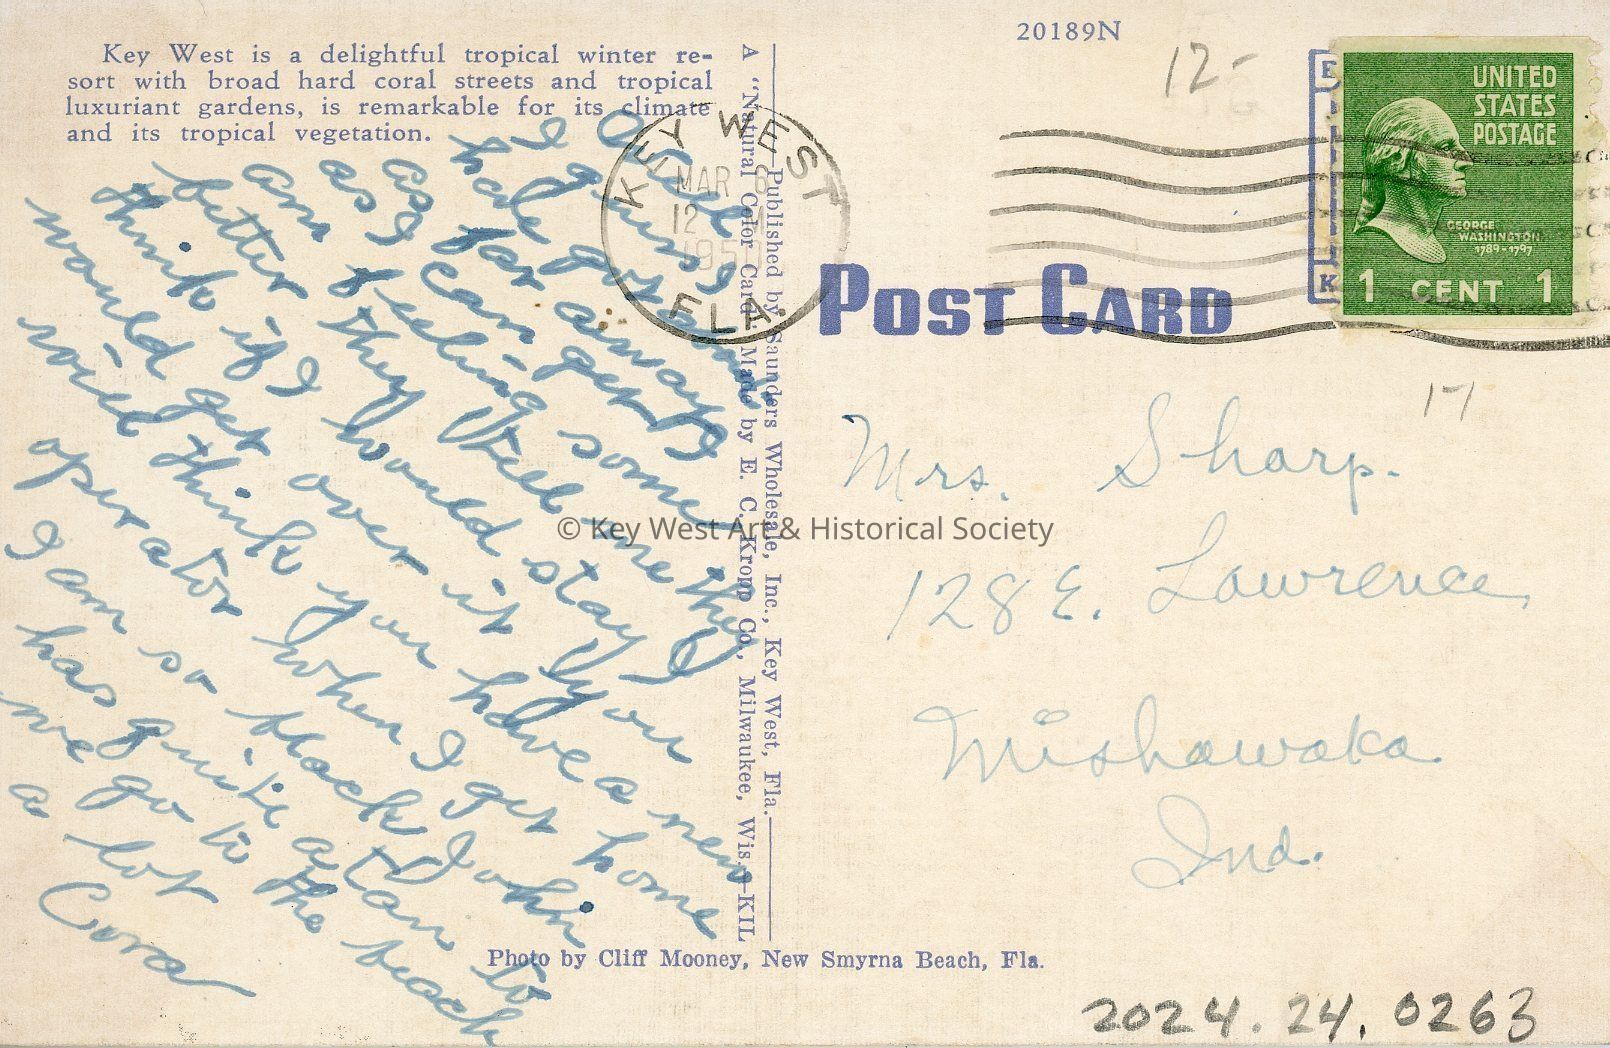 20189N
12-
Key West is a delightful tropical winter re-
sort with broad hard coral streets and tropical
luxuriant gardens, is remarkable for its climate
and its tropical vegetation.
A "Natural Color Card" Made by E. C. Kropp Co., Milwaukee, Wis.—KIL
Published by Saunders Wholesale, Inc., Key West, Fla.
KEY WEST
MAR 6
12 M
1950
FLA.
UNITED
STATES
POSTAGE
GEORGE
WASHINGTON
1789-1797
1 CENT 1
POST CARD
17
Mrs. Sharp.
128 E. Lawrence
Mishawaka
Ind.
I guess I
have got
as far away
as I can get I
am feeling some
better they tell me they
think if I would stay I
would get over it you
will think you have a new
operator when I get home
I am so black John
has quite a tan
we go to the beach
a lot
Cora
© Key West Art & Historical Society
Photo by Cliff Mooney, New Smyrna Beach, Fla.
2024.24.0263